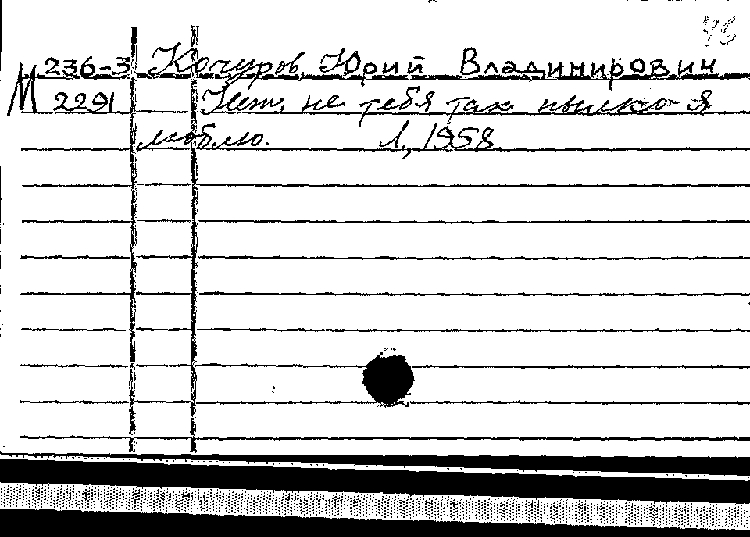 43
236-3 Кочуров, Юрий Владимирович
М 2291 Нет, не тебя так пылко я
люблю. Л., 1958